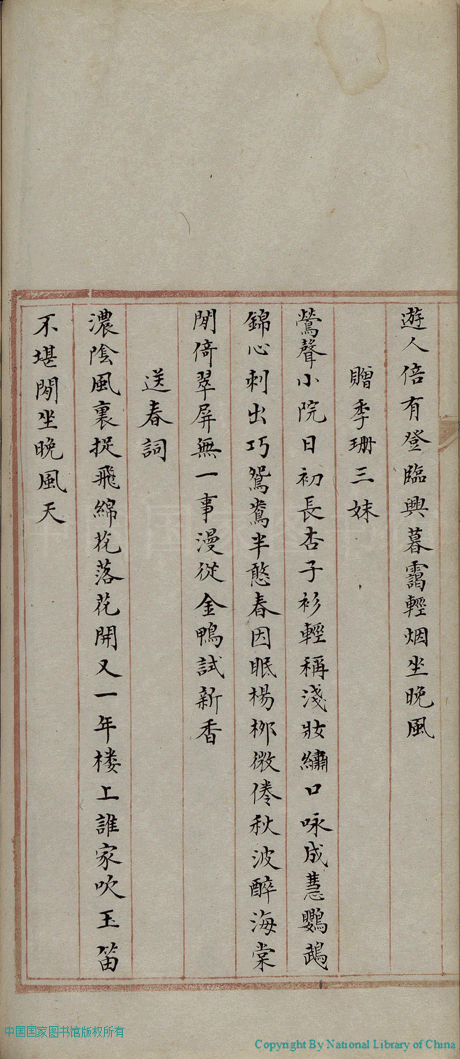 遊人倍有登臨興暮靄輕烟坐晚風
贈季珊三妹
鶯聲小院日初長杏子衫輕稱淺妝繡口咏成慧鸚鵡
錦心刺出巧鴛鴦半憨春因眠楊柳微倦秋波醉海棠
閒倚翠屏無一事漫從金鴨試新香
送春詞
濃陰風裏捉飛綿花落花開又一年楼上誰家吹玉笛
不堪閒坐晚風天
中国国家图书馆版权所有
Copyright By National Library of China